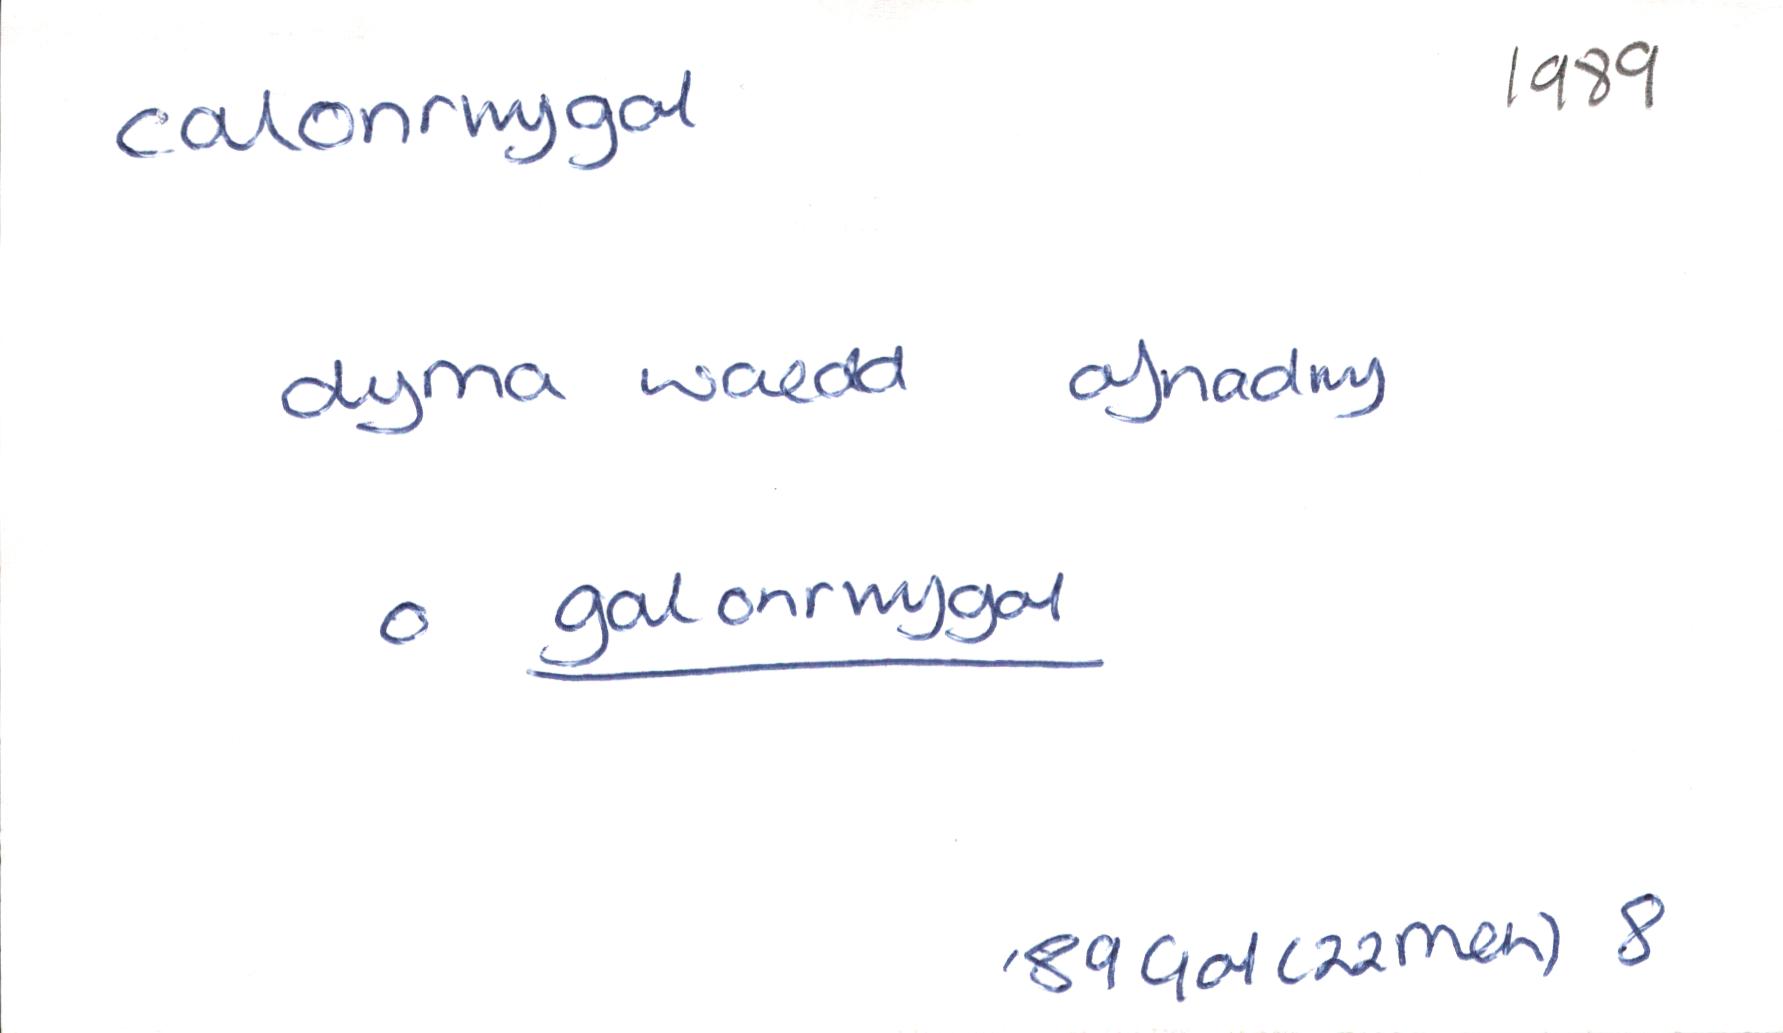 calonrwygol 1989
dyma waedd ofnadwy
o galonrwygol
'89 Gol (22 Meh) 8